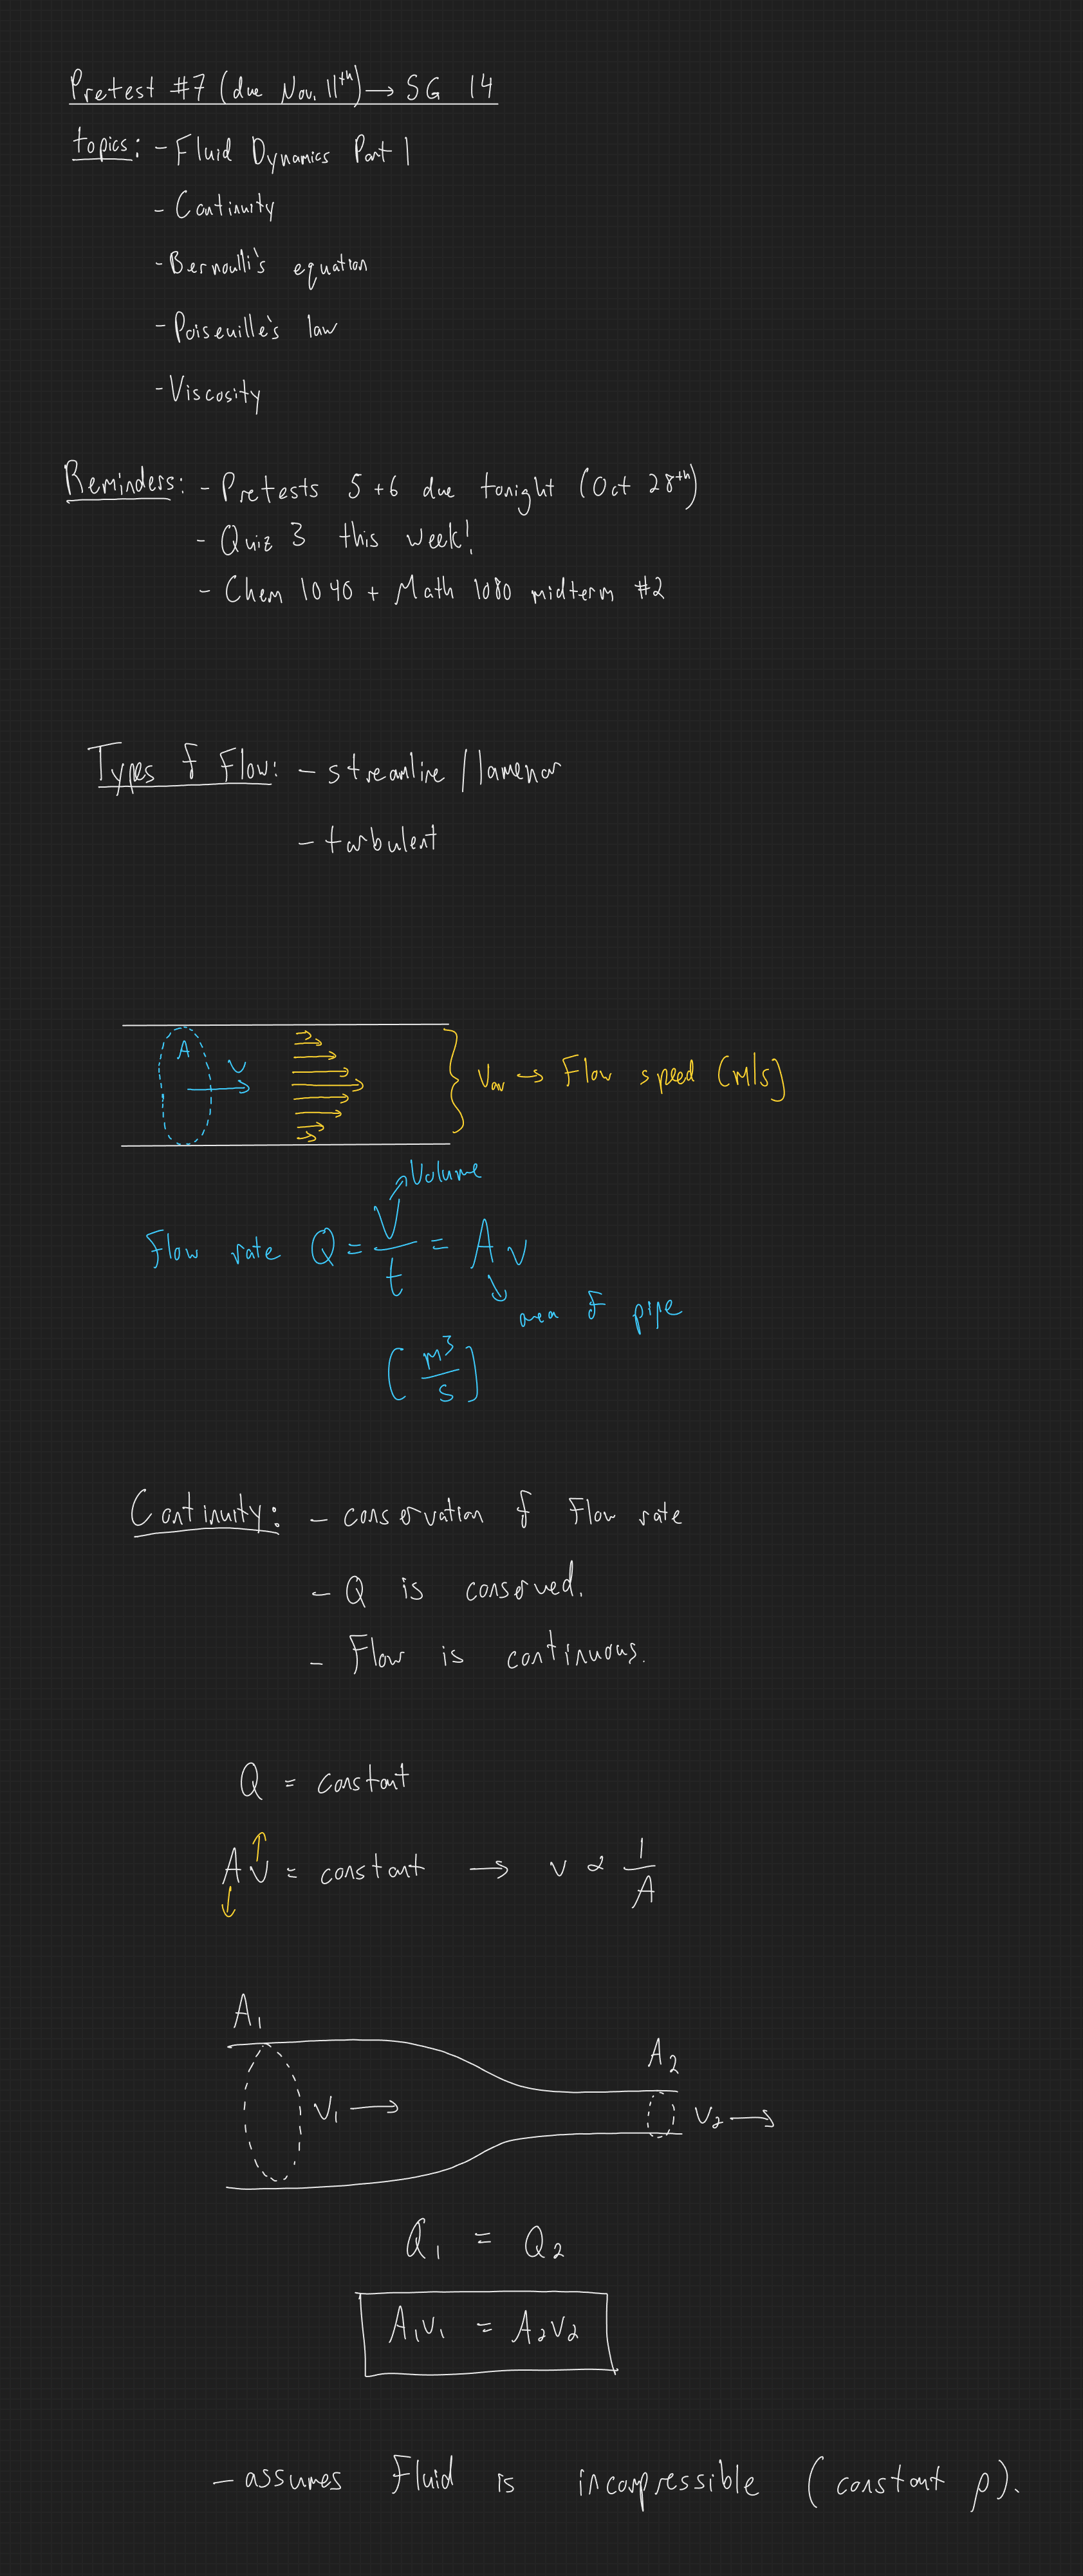 Pretest #7 (due Nov. 11th) → SG 14
topics: - Fluid Dynamics Part 1
- Continuity
- Bernoulli's equation
- Poiseuille's law
- Viscosity
Reminders: - Pretests 5 + 6 due tonight (Oct 28th)
- Quiz 3 this week!
- Chem 1040 + Math 1080 midterm #2
Types of Flow: - streamline / lamenar
- turbulent
A v
v_av → Flow speed (m/s)
Volume
Flow rate Q = V/t = A v
area of pipe
(m³/s)
Continuity: - conservation of Flow rate
- Q is conserved.
- Flow is continuous.
Q = constant
A v = constant → v ∝ 1/A
A₁
A₂
v₁ → v₂ →
Q₁ = Q₂
A₁v₁ = A₂v₂
- assumes Fluid is incompressible (constant ρ).